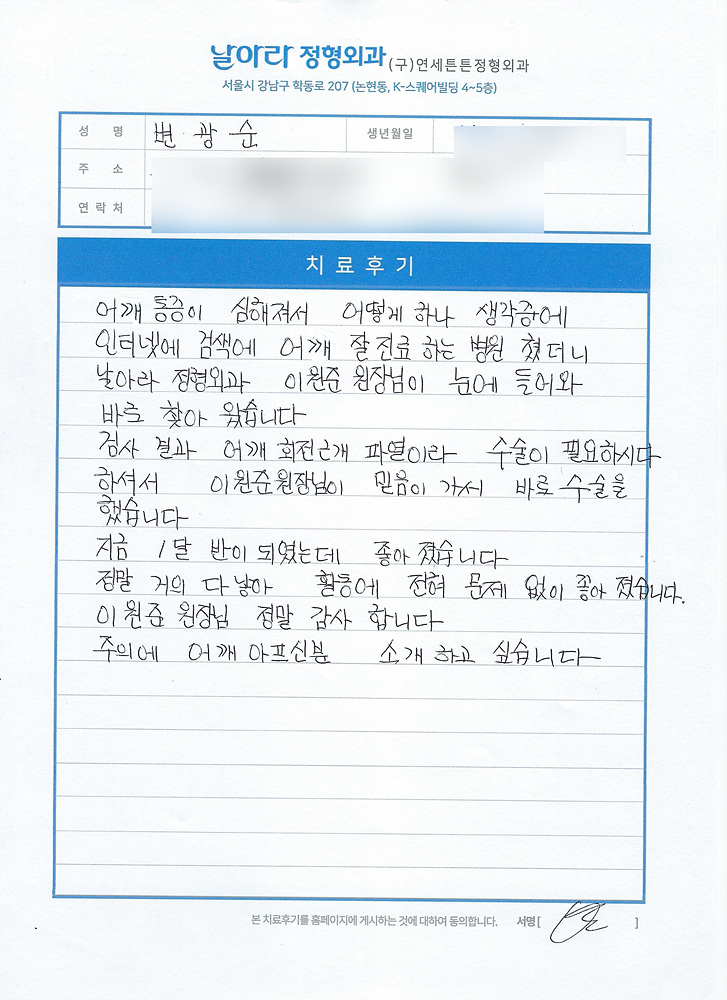 날아라 정형외과 (구)연세튼튼정형외과
서울시 강남구 학동로 207 (논현동, K-스퀘어빌딩 4~5층)
성 명 변광순 생년월일
주 소
연락처
치료후기
어깨 통증이 심해져서 어떻게 하나 생각중에
인터넷에 검색에 어깨 잘 진료 하는 병원 쳤더니
날아라 정형외과 이원준 원장님이 눈에 들어와
바로 찾아 왔습니다
검사 결과 어깨 회전근개 파열이라 수술이 필요하시다
하셔서 이원준원장님이 믿음이 가서 바로 수술을
했습니다
지금 1달 반이 되였는데 좋아 졌습니다
정말 거의 다 낳아 활동에 전혀 문제 없이 좋아 졌습니다.
이원준 원장님 정말 감사 합니다
주의에 어깨 아프신분 소개 하고 싶습니다
본 치료후기를 홈페이지에 게시하는 것에 대하여 동의합니다. 서명 [ ]